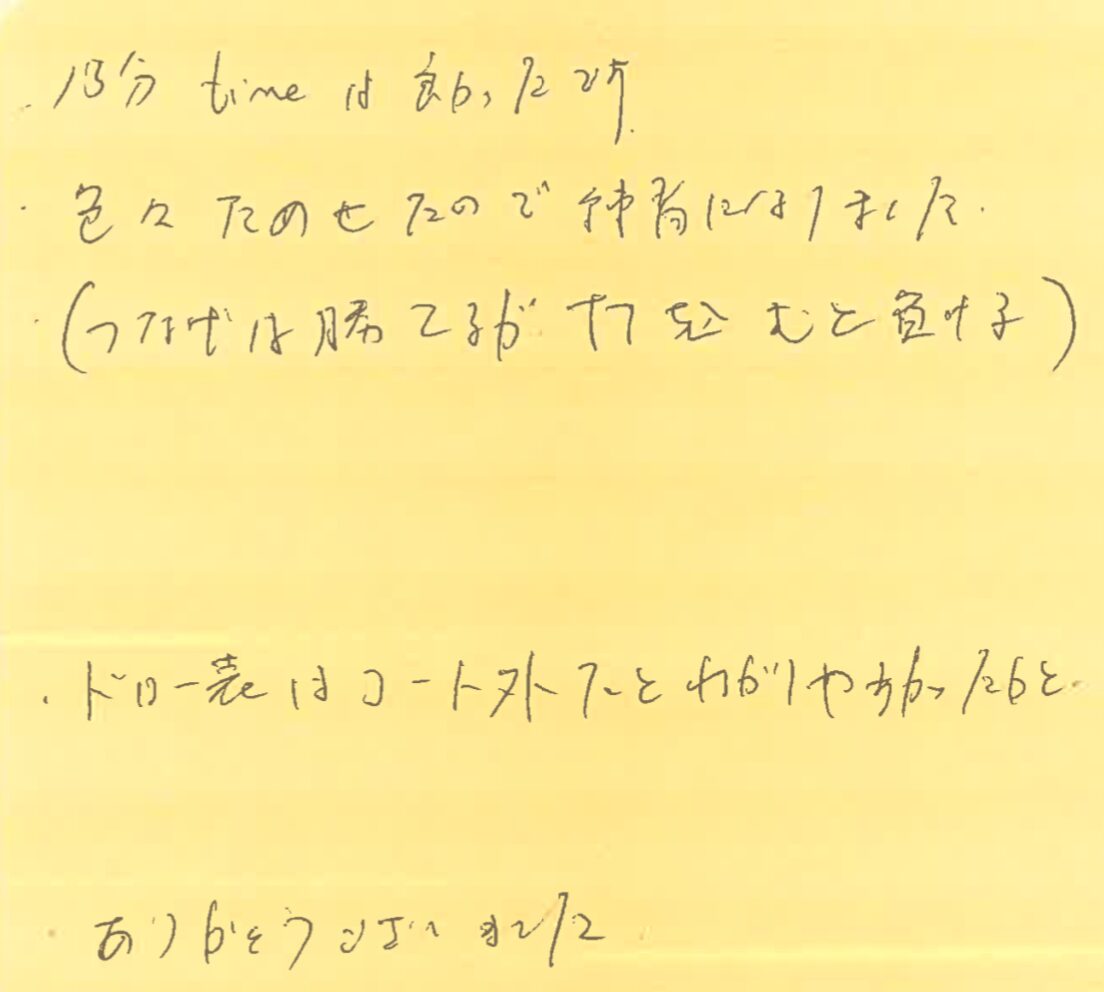 ・13分 timeは良かったです.
・色々ためせたので勉強になりました.
・(つなげば勝てるが 打ち込むと負ける)
・ドロー表はコート外だとわかりやすかったかと.
・ありがとうございました